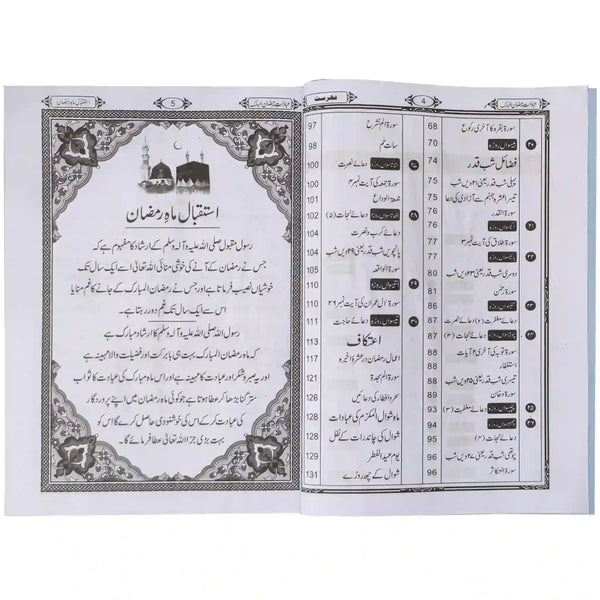 عبادات رمضان المبارک
4
فہرست
سورۃ بقرہ کا آخری رکوع 68
بیسواں روزہ 70
فضائل شب قدر 74
پہلی شب قدر یعنی ۲۱ویں شب
تیسرا عشرہ جہنم سے آزادی کی دعا 75
سورۃ القدر 76
۲۱ اکیسواں روزہ
سورۃ طلاق کی آیت نمبر ۳ 77
۲۲ بائیسواں روزہ
دوسری شب قدر یعنی ۲۳ویں شب 80
سورۃ رحمٰن 81
۲۳ 86
دعائے مغفرت (۲) دعائے نصرت 87
۲۴ چوبیسواں روزہ دعائے نجات (۳) 87
سورۃ توبہ کی آخری ۲ آیات 88
استغفار 88
تیسری شب قدر یعنی ۲۵ویں شب
سورۃ دخان 89
۲۵ پچیسواں روزہ دعائے مغفرت (۳) 93
۲۶ چھبیسواں روزہ 94
دعائے نجات (۴)
چوتھی شب قدر یعنی ۲۷ویں شب 96
سورۃ التکاثر 96
سورۃ الم نشرح 97
سات حٰم 98
۲۷ ستائیسواں روزہ دعائے نصرت 100
سورۃ جمعہ کی آیت نمبر ۴ 100
جمعۃ الوداع 101
۲۸ اٹھائیسواں روزہ دعائے نجات (۵) 102
دعائے کرب و نصرت 104
پانچویں شب قدر یعنی ۲۹ویں شب
سورۃ الواقعہ 105
۲۹ انتیسواں روزہ 110
سورۃ آل عمران کی آیت نمبر ۲۶ 110
۳۰ تیسواں روزہ دعائے حاجت 111
اعتکاف 113
اعمال رمضان در عشرۂ اخیرہ 117
سورۃ السجدۃ
سحر و افطار کی دعائیں 126
ماہ شوال المکرم کی عبادات 128
شوال کی چاند رات کے نفل 128
یوم عید الفطر 129
شوال کے چھ روزے 131
عبادات رمضان المبارک
5
استقبال ماہ رمضان
استقبال ماہِ رمضان
رسول مقبول صلی اللہ علیہ و آلہ وسلم کے ارشاد کا مفہوم ہے کہ
جس نے رمضان کے آنے کی خوشی منائی اللہ تعالیٰ اسے ایک سال تک
خوشیاں نصیب فرماتا ہے اور جس نے رمضان المبارک کے جانے کا غم منایا
اس سے ایک سال تک غم دور رہتا ہے۔
رسول اللہ صلی اللہ علیہ و آلہ وسلم کا ارشاد مبارک ہے
کہ ماہ رمضان المبارک بہت ہی بابرکت اور فضیلت والا مہینہ ہے
اور یہ صبر و شکر اور عبادت کا مہینہ ہے اور اس ماہ مبارک کی عبادت کا ثواب
ستر گنا بڑھا کر عطا ہوتا ہے جو کوئی ماہ رمضان میں اپنے پروردگار
کی عبادت کر کے اس کی خوشنودی حاصل کرے گا اس کو
بہت بڑی جزا اللہ تعالیٰ عطا فرمائے گا۔